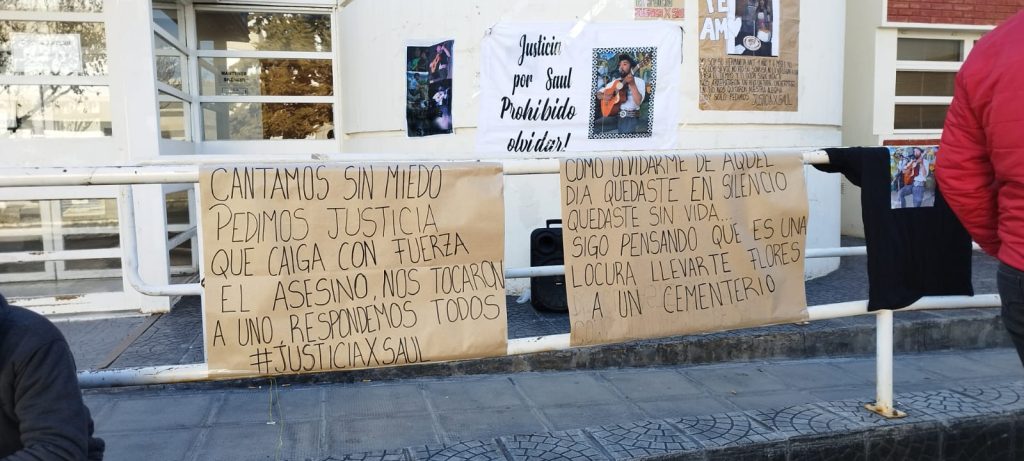 Justicia
por Saul
Prohibido
olvidar!
TE
AM
JUSTICIA X SAUL
CANTAMOS SIN MIEDO
PEDIMOS JUSTICIA
QUE CAIGA CON FUERZA
EL ASESINO, NOS TOCARON
A UNO, RESPONDEMOS TODOS
#JUSTICIAXSAUL
COMO OLVIDARME DE AQUEL
DIA QUEDASTE EN SILENCIO
QUEDASTE SIN VIDA...
SIGO PENSANDO QUE ES UNA
LOCURA LLEVARTE FLORES
A UN CEMENTERIO